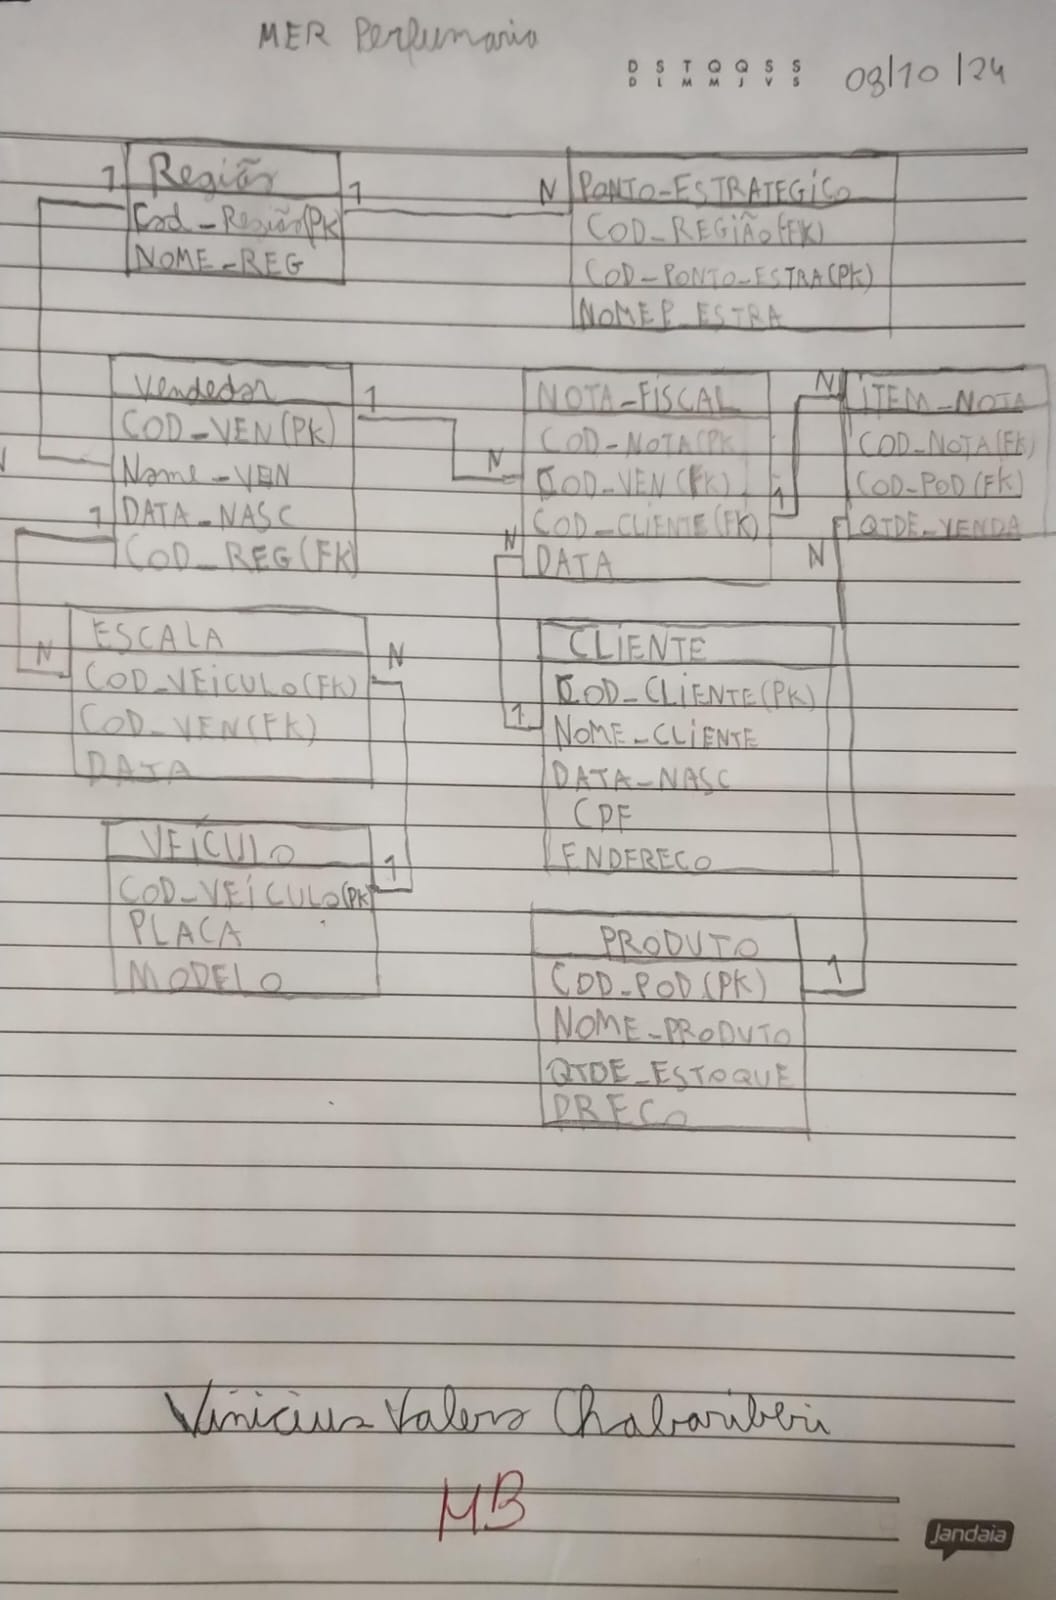 MER Perfumaria
D S T Q Q S S
D L M M J V S
09/10/24
1 Região 1
Cod_Região(PK)
NOME_REG
N PONTO-ESTRATEGICO
COD_REGIÃO(FK)
COD_PONTO_ESTRA(PK)
NOMEP_ESTRA
Vendedor 1
COD_VEN(PK)
N Nome_VEN
1 DATA_NASC
COD_REG(FK)
NOTA_FISCAL
COD_NOTA(PK
N COD_VEN(FK)
COD_CLIENTE(FK) 1
N DATA
N ITEM_NOTA
COD_NOTA(FK)
COD_POD(FK)
QTDE_VENDA
N
ESCALA
N COD_VEICULO(FK) N
COD_VEN(FK)
DATA
CLIENTE
COD_CLIENTE(PK)
1 NOME_CLIENTE
DATA_NASC
CPF
ENDERECO
VEÍCULO 1
COD_VEÍCULO(PK)
PLACA
MODELO
PRODUTO
COD_POD(PK) 1
NOME_PRODUTO
QTDE_ESTOQUE
PRECO
Vinicius Valero Chabariberi
MB
Jandaia